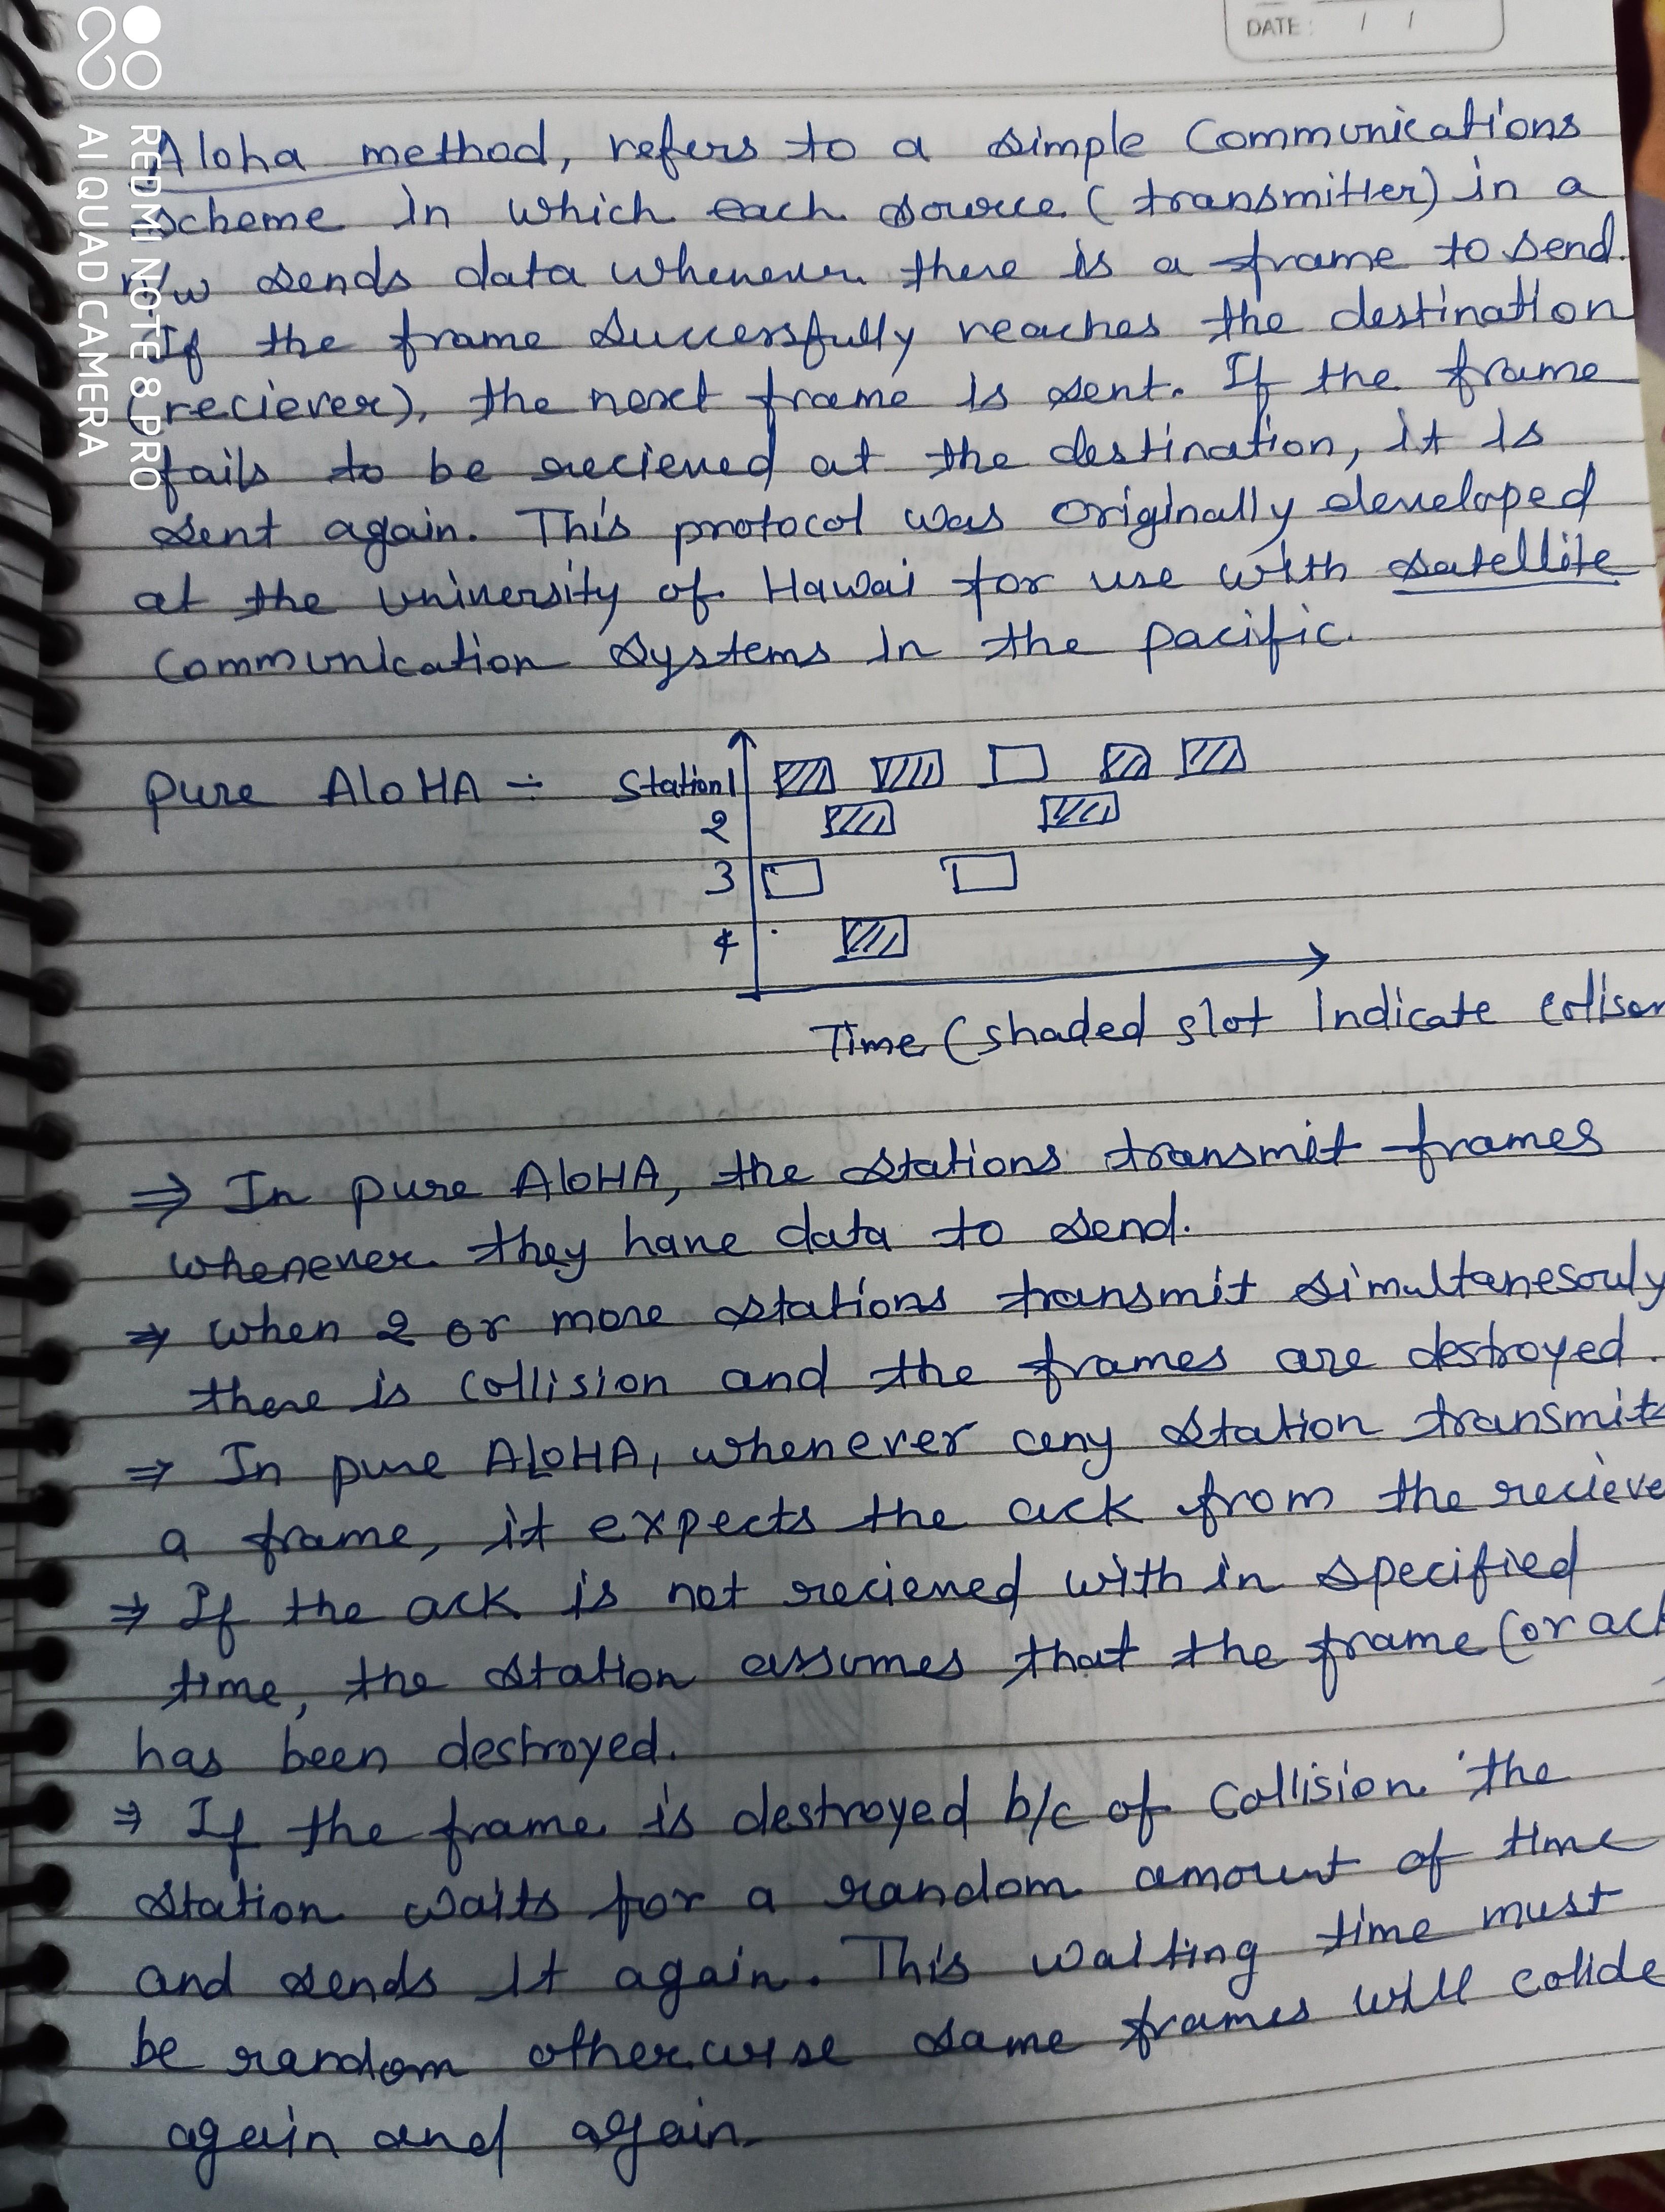 DATE : / /
Aloha method, refers to a simple Communications
scheme in which each source (transmitter) in a
n/w sends data whenever there is a frame to send.
If the frame successfully reaches the destination
(reciever), the next frame is sent. If the frame
fails to be recieved at the destination, it is
sent again. This protocol was originally developed
at the university of Hawai for use with satellite
Communication systems in the pacific.
Pure AloHA ÷ Station 1
2
3
4
Time (shaded slot Indicate
⇒ In pure AloHA, the stations transmit frames
whenever they have data to send.
⇒ when 2 or more stations transmit simultanesouly
there is collision and the frames are destroyed.
⇒ In pure ALOHA, whenever any station transmits
a frame, it expects the ack from the recieve
⇒ If the ack is not recieved with in specified
time, the station assumes that the frame (or ack
has been destroyed.
⇒ If the frame is destroyed b/c of Collision the
station waits for a random amount of time
and sends it again. This waiting time must
be random otherwise same frames will colide
again and again.
REDMI NOTE 8 PRO
AI QUAD CAMERA